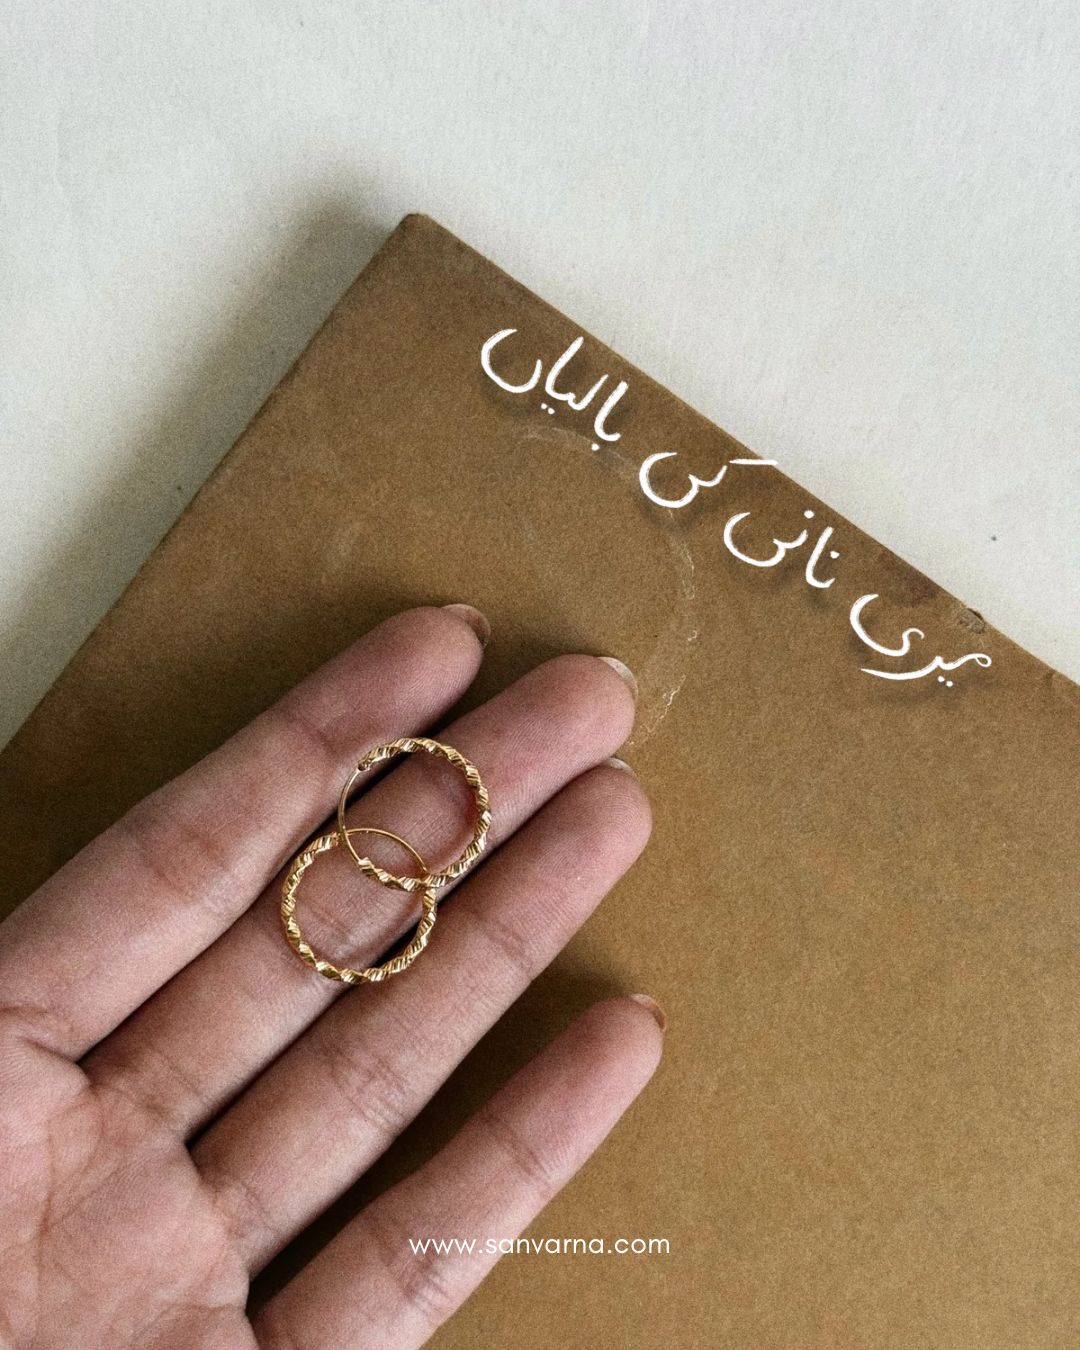 میری نانی کی بالیاں
www.sanvarna.com